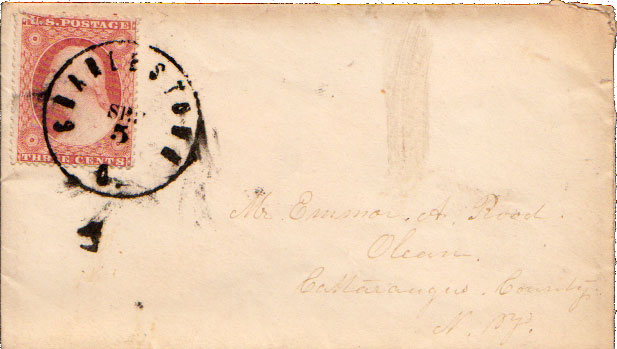 U.S. POSTAGE
CHARLESTOWN
SEP
5
O.
THREE CENTS
Mr Emmor. A. Rood.
Olean.
Cattaraugus. County.
N. Y.